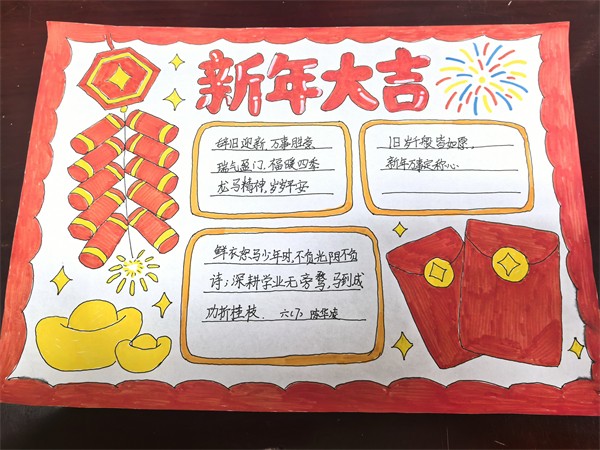 新年大吉
辞旧迎新，万事胜意
瑞气盈门，福暖四季
龙马精神，岁岁平安
旧岁千般皆如愿，
新年万事定称心。
鲜衣怒马少年时，不负光阴不负
诗；深耕学业无旁骛，马到成
功折桂枝．六(7) 陈华凌